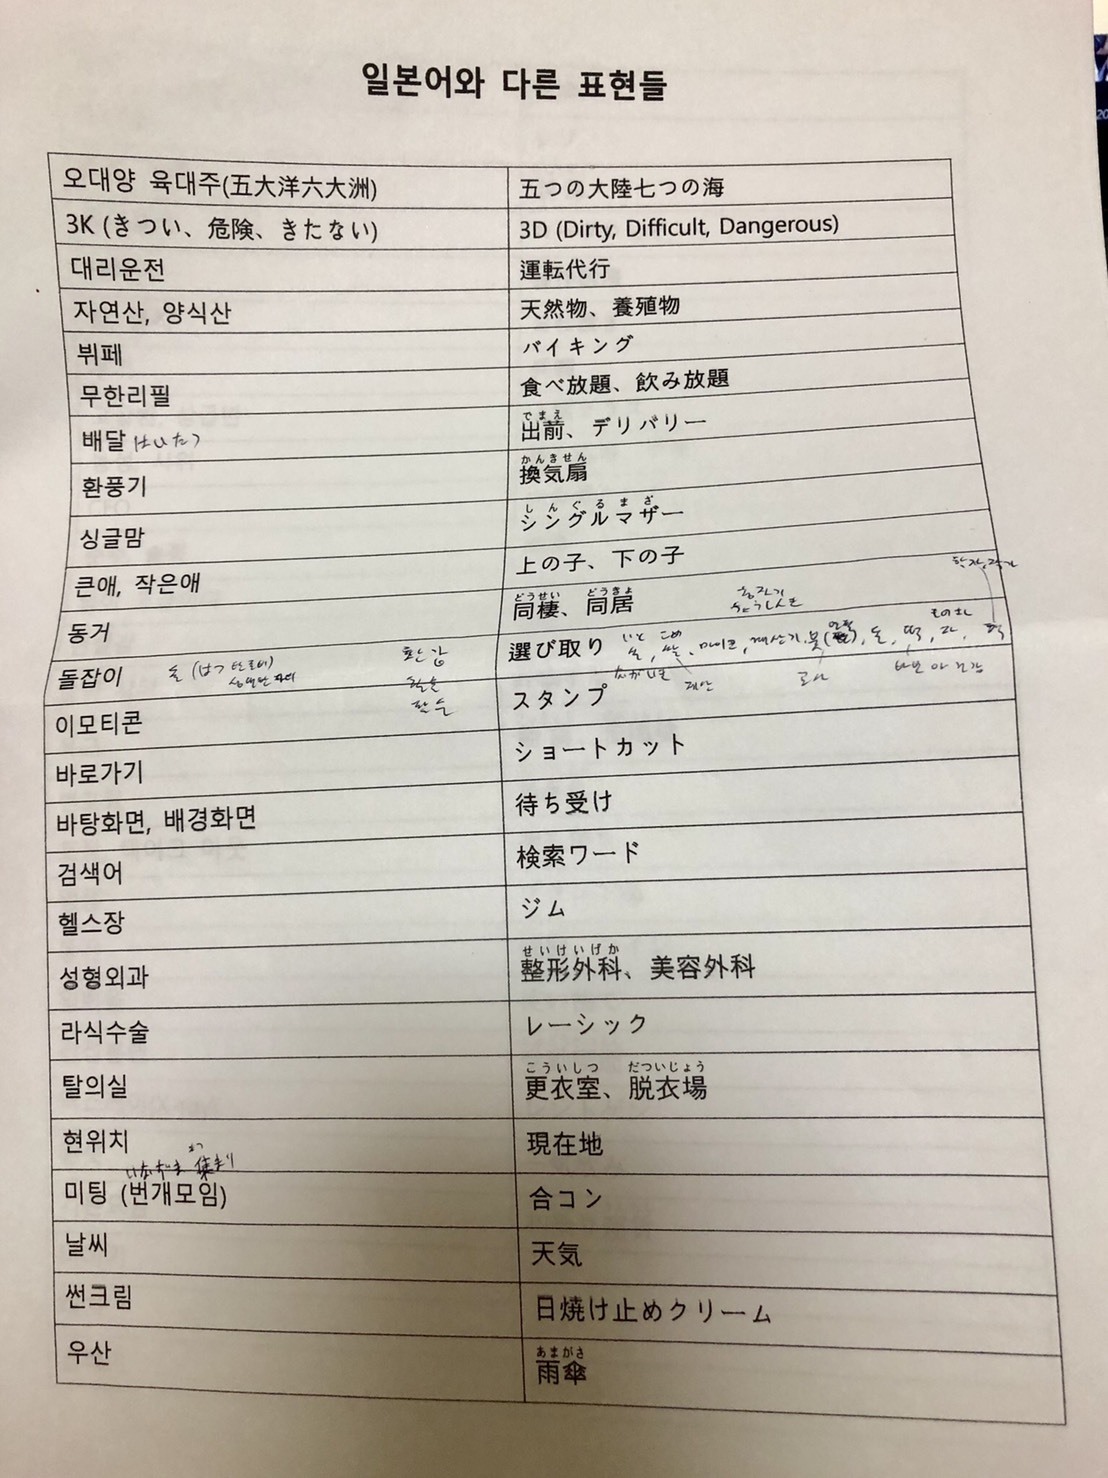 일본어와 다른 표현들
오대양 육대주(五大洋六大洲) 五つの大陸七つの海
3K (きつい、危険、きたない) 3D (Dirty, Difficult, Dangerous)
대리운전 運転代行
자연산, 양식산 天然物、養殖物
뷔페 バイキング
무한리필 食べ放題、飲み放題
でまえ
배달 はいたつ 出前、デリバリー
かんきせん
환풍기 換気扇
しんぐるまざ
싱글맘 シングルマザー
큰애, 작은애 上の子、下の子
どうせい どうきょ
동거 同棲、同居
いと こめ
돌잡이 選び取り 실, 쌀, 마이크, 계산기, 붓, 돈, 떡
이모티콘 スタンプ
바로가기 ショートカット
바탕화면, 배경화면 待ち受け
검색어 検索ワード
헬스장 ジム
せいけいげか
성형외과 整形外科、美容外科
라식수술 レーシック
こういしつ だついじょう
탈의실 更衣室、脱衣場
현위치 現在地
集まり
미팅 (번개모임) 合コン
날씨 天気
썬크림 日焼け止めクリーム
あまがさ
우산 雨傘